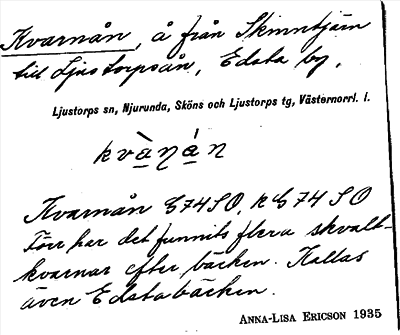 Kvarnån, å från Skinntjärn
till Ljustorpsån, Edsta by.
Ljustorps sn, Njurunda, Sköns och Ljustorps tg, Västernorrl. l.
kvànán
Kvarnån E74SO, k E74 SO
Förr har det funnits flera skvalt-
kvarnar efter bäcken. Kallas
även Edstabäcken.
ANNA-LISA ERICSON 1935